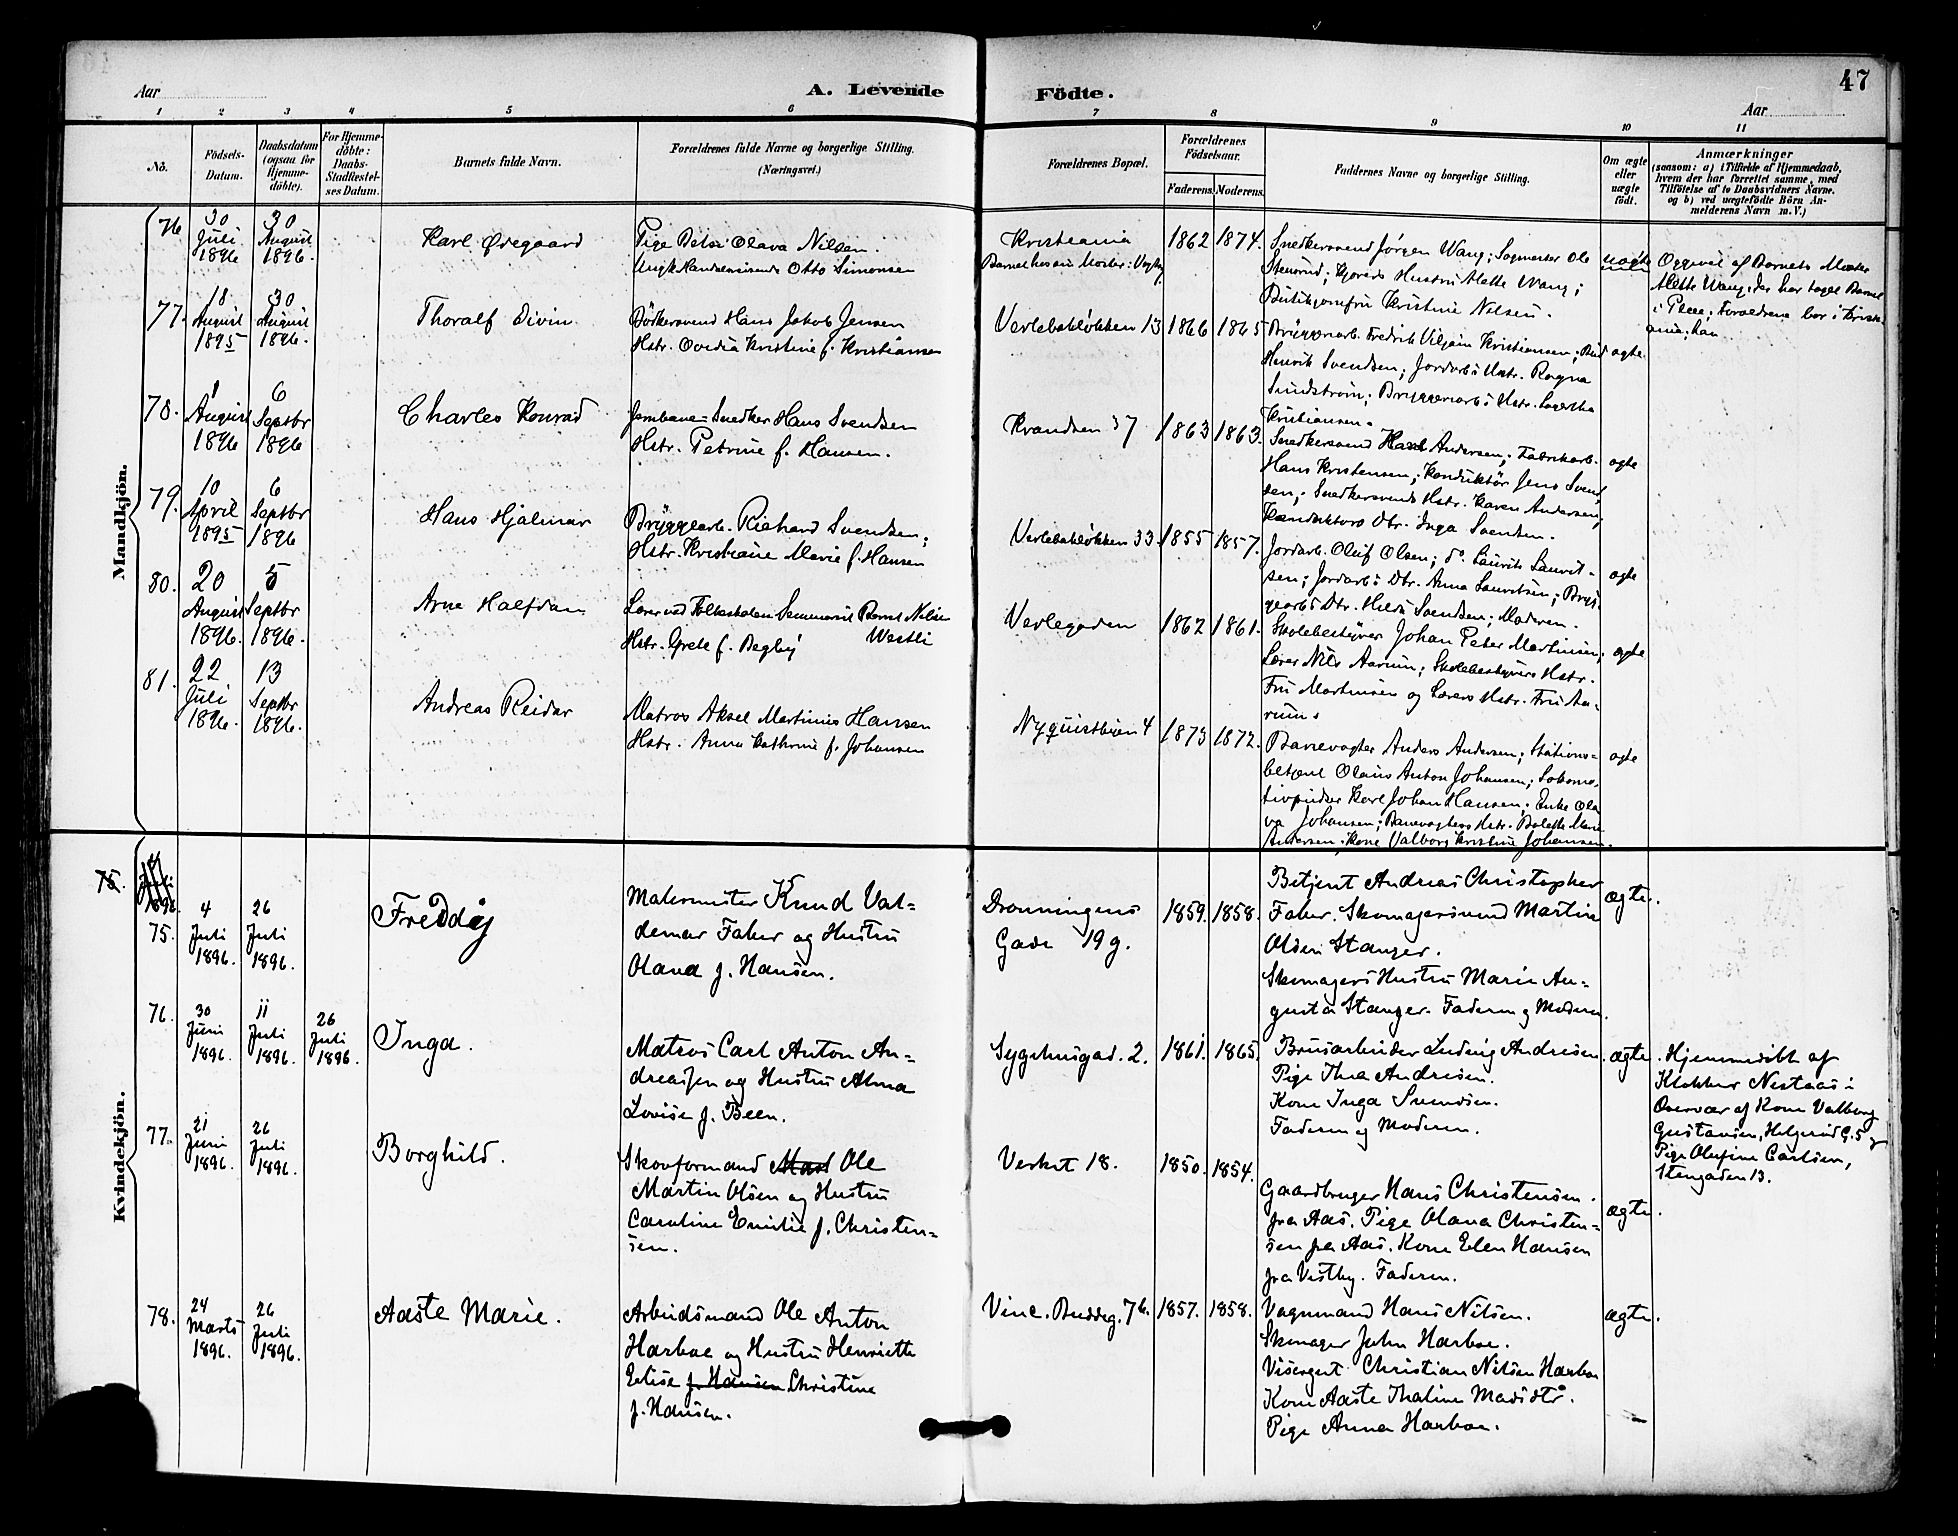 47
Aar
A. Levende Födte.
Aar
1 2 3 4 5 6 7 8 9 10 11
No.
Födsels-Datum.
Daabsdatum (ogsaa for Hjemme-döbte).
For Hjemme-döbte: Daabs-Stadfæstel-ses Datum.
Barnets fulde Navn.
Forældrenes fulde Navne og borgerlige Stilling.
(Næringsvei.)
Forældrenes Bopæl.
Forældrenes Födselsaar.
Faderens. Moderens.
Faddernes Navne og borgerlige Stilling.
Om ægte eller uægte födt.
Anmærkninger
(saasom: a) i Tilfælde af Hjemmedaab,
hvem der har forrettet samme, med
Tilföielse af to Daabsvidners Navne.
og b) ved uægtefödte Börn An-
melderens Navn m. V.)
Mandkjön.
76 30 Juli 1896 30 August 1896.
Karl Øregaard
Pige Betsi Olava Nilsen.
Ungk Handelsreisende Otto Simonsen
Kristiania
1862 1874.
Snedkersvend Jørgen Wang; Sagmester Ole
Stensrud; Hustru Alette Wang;
Butikjomfru Kristine Nilsen.
uægte
Opgivet af Barnets Moster
Alette Wang, der har taget Barnet
i Pleie; Forældrene bor i Kristi-
ania;
77. 18 August 1895 30 August 1896.
Thoralf Eivin
Bödkersvend Hans Jakob Jensen
Hstr. Ovedia Kristine f. Kristiansen
Verlebakløkken 13
1866 1865
Bryggearb. Fredrik Viljam Kristiansen; Bud
Henrik Svendsen; Jordarb's Hstr. Ragna
Sundström; Bryggearb's Hstr. Lagertha
Kristiansen.
ægte.
78. 1 August 1896 6 Septbr 1896
Charles Konrad
Jernbane=Snedker Hans Svendsen
Hstr. Petrine f. Hansen.
Krandsen 37
1863 1863.
Snedkersvend Karl Andersen; Fabrikarb.
Hans Kristensen; Konduktør Jens Svend-
sen; Snedkersvends Hstr. Karen Andersen;
Konduktørs Dtr. Inga Svendsen.
ægte
79. 10 April 1895 6 Septbr 1896
Hans Hjalmar
Bryggearb. Richard Svendsen;
Hstr. Kristiane Marie f. Hansen
Verlebakløkken 33.
1855 1857.
Jordarb. Oluf Olsen; do Laurits Laurit-
sen; Jordarb's Dtr. Anna Lauritsen; Bryg-
gearb's Dtr. Hilda Svendsen; Moderen.
ægte
80. 20 August 1896. 5 Septbr 1896.
Arne Halfdan
Lærer ved Folkeskolen Seminarist Bernt Nilsen
Westli
Hstr. Grete f. Begby
Verlegaden
1862 1861.
Skolebestyrer Johan Peter Martinsen;
Lærer Nils Aarum; Skolebestyrers Hstr.
Fru Martinsen og Lærers Hstr. Fru Aa-
rum.
ægte
81. 22 Juli 1896. 13 Septbr 1896.
Andreas Reidar
Matros Aksel Martinius Hansen
Hstr. Anna Kathrine f. Johansen
Nyquistbyen 4
1873 1872.
Banevogter Anders Andersen; Stations=
betjent Olaus Anton Johansen; Lokomo-
tivpudser Karl Johan Hansen; Enke Ola
va Johansen; Banevogters Hstr. Bolette Marie
Andersen; Kone Valborg Kristine Johansen.
ægte
Kvindekjön.
75.
75. 4 Juli 1896. 26 Juli 1896.
Freddy
Malermester Knud Val=
demar Faber og Hustru
Olava f. Hansen.
Dronningens
Gade 19 g.
1859. 1858.
Betjent Andreas Christopher
Faber. Skomagersvend Martin
Olsen Stanger.
Skomagers Hustru Marie Au=
gusta Stanger. Faderen og Moderen.
ægte.
76. 30 Juni 1896. 11 Juli 1896. 26 Juli 1896.
Inga.
Matros Carl Anton An=
dreassen og Hustru Alma
Lovise f. Been.
Sygehusgad. 2.
1861. 1865.
Brusarbeider Ludvig Andresen.
Pige Thea Andresen.
Kone Inga Svendsen.
Faderen og Moderen.
ægte.
Hjemmedøbt af
Klokker Nestaas i
Overvær af Kone Valborg
Gustavsen, Helgerød G. 5 og
Pige Olufine Carlsen,
Stengaden 13.
77. 21 Juni 1896. 26 Juli 1896.
Borghild.
Skovformand Ole
Martin Olsen og Hustru
Caroline Emilie f. Christen=
sen.
Verket 18.
1850. 1854.
Gaardbruger Hans Christensen.
fra Aas. Pige Olava Christen=
sen fra Aas. Kone Elen Hansen
fra Vestby. Faderen.
ægte.
78. 24 Marts 1896. 26 Juli 1896.
Aaste Marie.
Arbeidsmand Ole Anton
Harboe og Hustru Henriette
Elise f. Hansen Christine
f. Hansen.
Vinc. Buddeg. 76.
1857. 1858.
Vognmand Hans Nilsen.
Skomager John Harboe.
Visergut Christian Nilsen Harboe
Kone Aaste Thaline Madsdtr.
Pige Anna Harboe.
ægte.